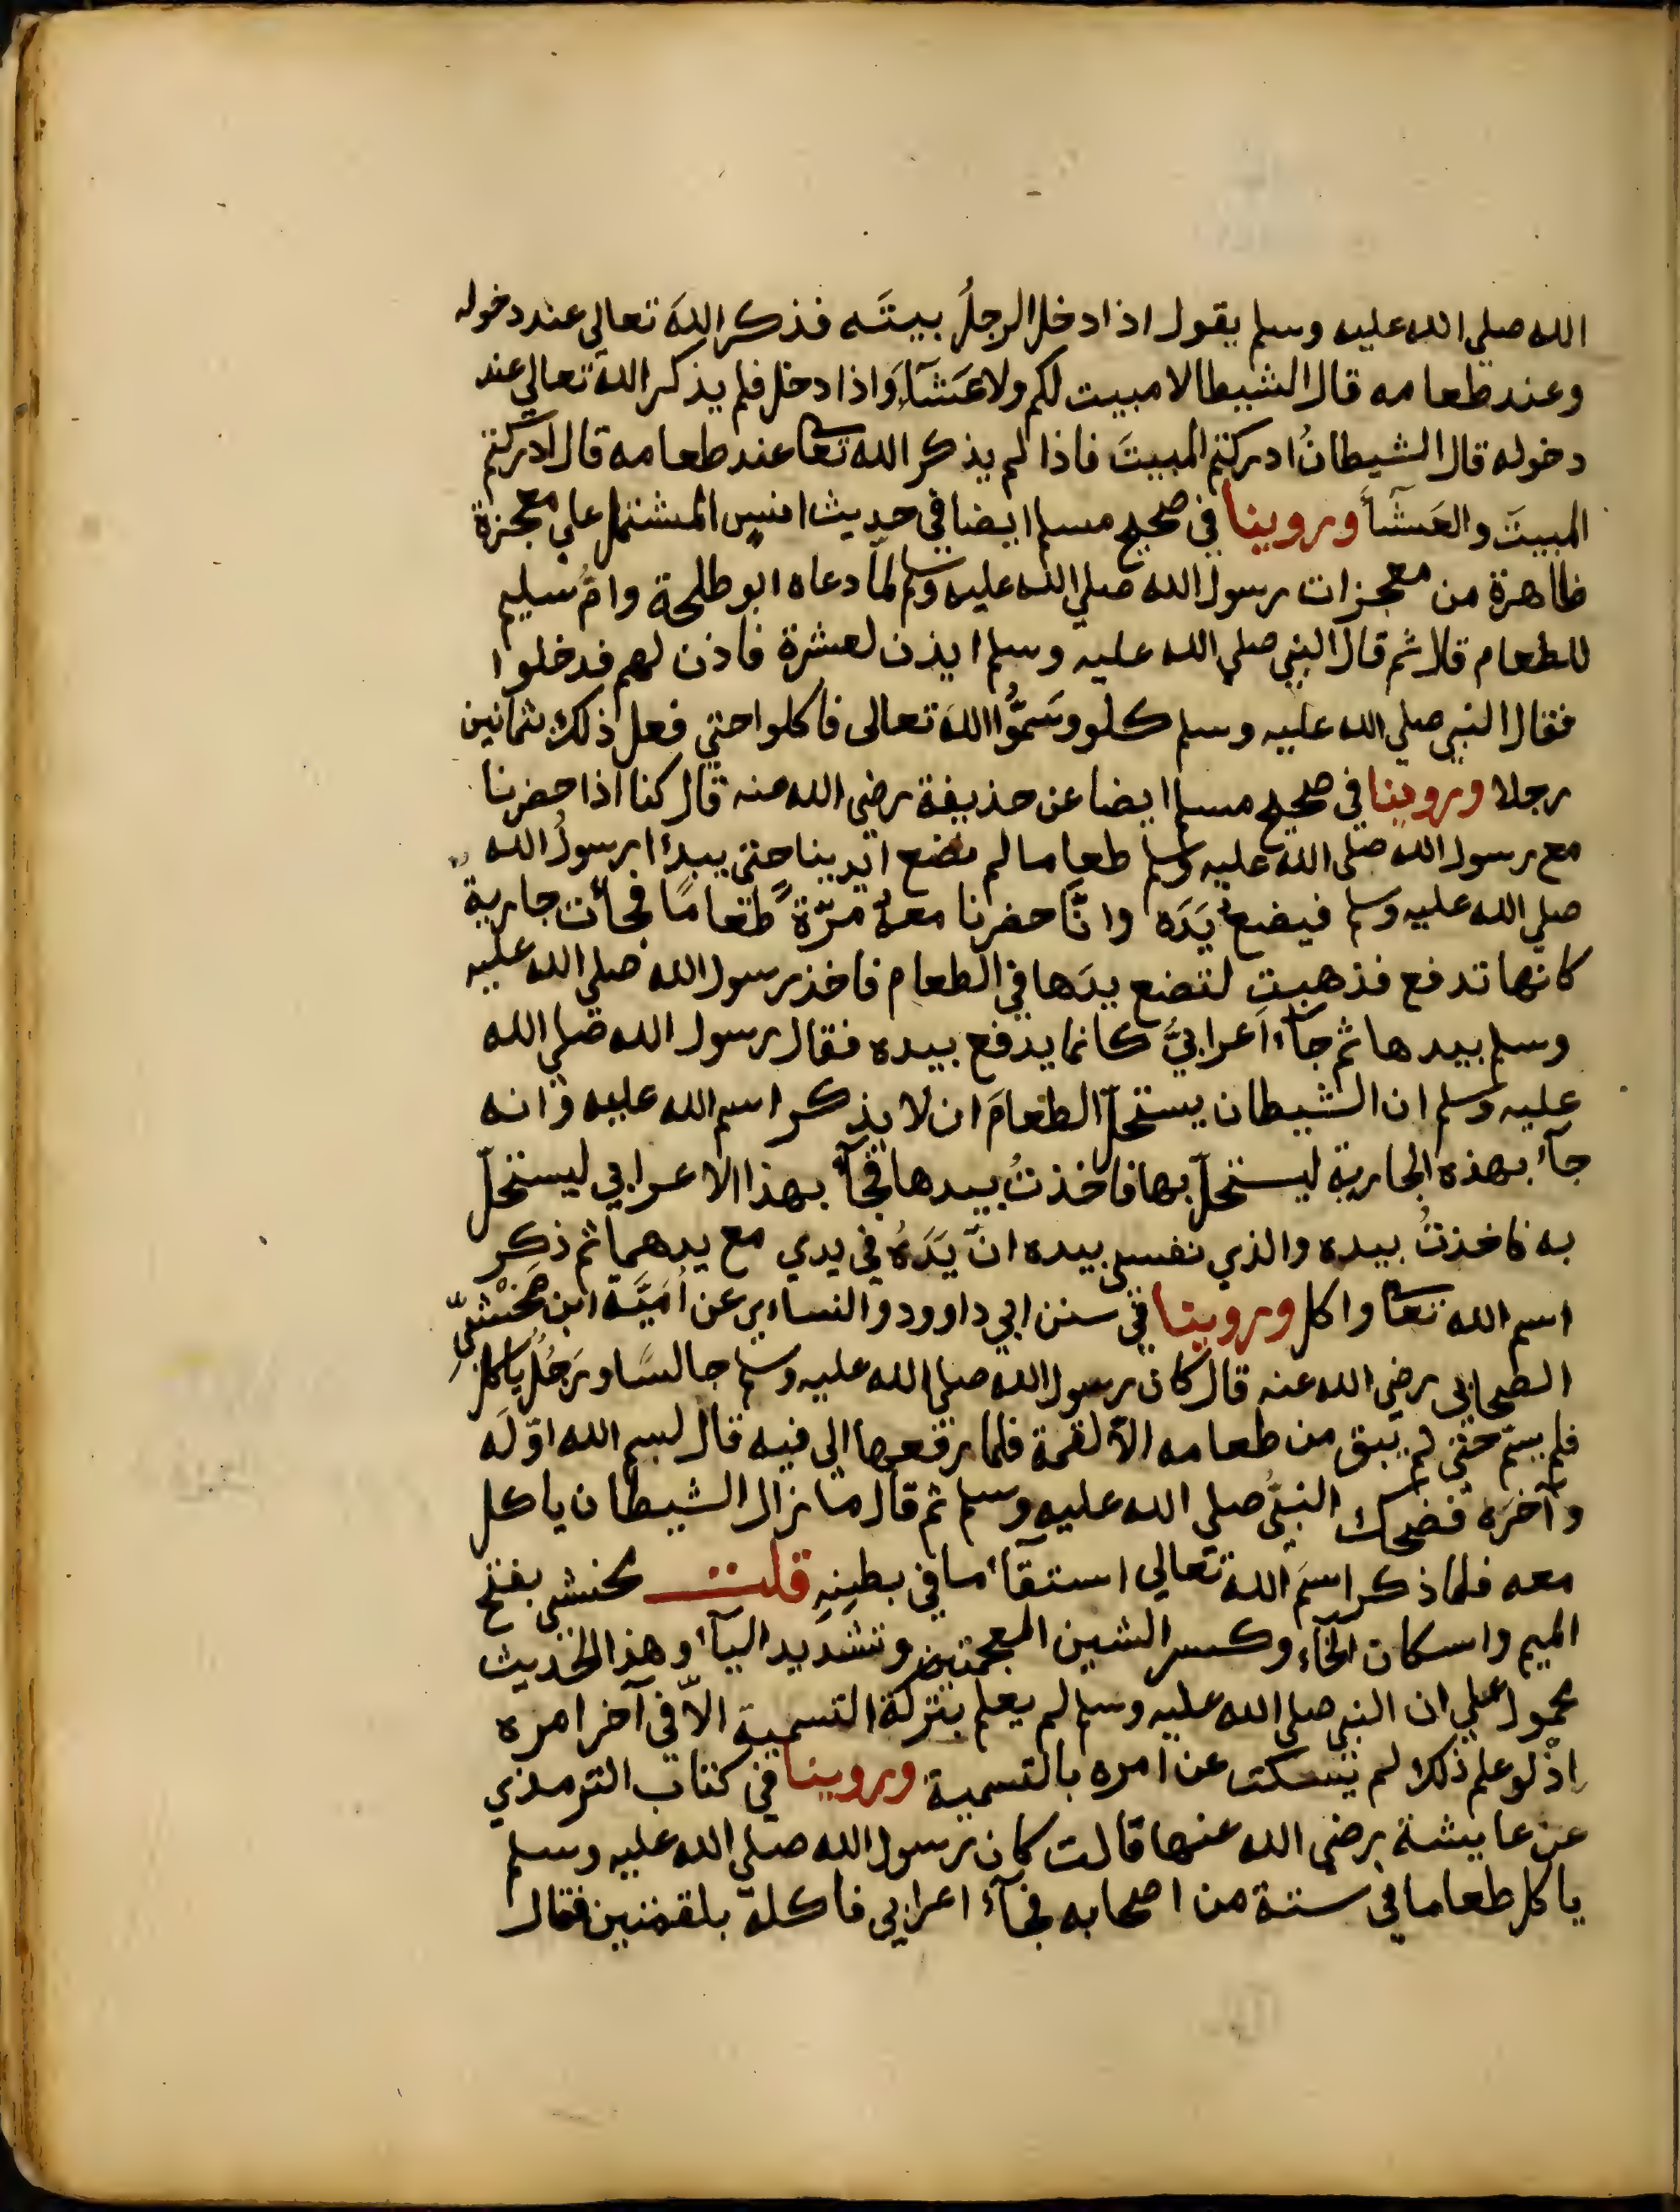 الله صلى الله عليه وسلم يقول اذا دخل الرجلُ بيتَه فذكر اللهَ تعالى عند دخوله
وعند طعامه قال الشيطا لا مبيت لكم ولا عَشَآءَ وَاذا دخل فلم يذكر اللهَ تعالي عند
دخوله قال الشيطانُ ادركتم المبيتَ فاذا لم يذكر الله تعا عند طعامه قال ادركتم
المبيتَ والعَشَآءَ وروينا في صحيح مسلم ايضا في حديث انس المشتمل علي معجزة
ظاهرة من معجزات رسول الله صلي الله عليه وسلم لمّا دعاه ابو طلحة وامُّ سليم
للطعام قلا ثم قال النبي صلي الله عليه وسلم ايذن لعشرة فاذن لهم فدخلوا
فقال النبي صلي الله عليه وسلم كلو وسَمُّوا اللهَ تعالى فاكلوا حتي فعل ذلك بثمانين
رجلا وروينا في صحيح مسلم ايضا عن حذيفة رضي الله عنه قال كنا اذا حضرنا
مع رسول الله صلى الله عليه وسلم طعاما لم نضع ايدينا حتى يبدأ رسولُ الله
صلي الله عليه وسلم فيضع يَدَه وانَّا حضرنا معهُ مرّةً طعامًا فجأت جارية
كانها تدفع فذهبت لتضع يدَها في الطعام فاخذ رسول الله صلي الله عليه
وسلم بيدها ثم جآء اعرابيٌّ كانما يدفع بيده فقال رسول الله صلي الله
عليه وسلم ان الشيطان يستحلّ الطعامَ ان لا يذكر اسم الله عليه وانه
جآء بهذه الجارية ليستحلّ بها فاخذتُ بيدها فجآء بهذا الاعرابي ليستحلّ
به فاخذتُ بيده والذي نفسي بيده انّ يَدَهُ في يدي مع يدهما ثم ذكر
اسم الله تعا واكل وروينا في سنن ابي داوود والنساءي عن اُمَيَّة ابن مَخْشيّ
الصحابي رضي الله عنه قال كان رسول الله صلي الله عليه وسلم جالسًا ورَجُلٌ ياكل
فلم يسمّ حتي لم يبق من طعامه الاّ لقمة فلما رفعها الي فيه قال بسم الله اوّلَه
وآخرَه فضحك النبيُّ صلي الله عليه وسلم ثم قال ما زال الشيطان ياكل
معه فلما ذكر اسمَ الله تعالي استقآء ما في بطنِهِ قلت مخشي بفتح
الميم واسكان الخآء وكسر الشين المعجمتين وتشديد اليآء وهذا الحديث
محمول علي ان النبي صلي الله عليه وسلم لم يعلم بتركه التسمية الاّ في آخر امره
اذْ لو علم ذلك لم يسكت عن امره بالتسمية وروينا في كتاب الترمذي
عن عايشة رضي الله عنها قالت كان رسول الله صلي الله عليه وسلم
ياكل طعاما في ستة من اصحابه فجآء اعرابي فاكله بلقمتين فقال